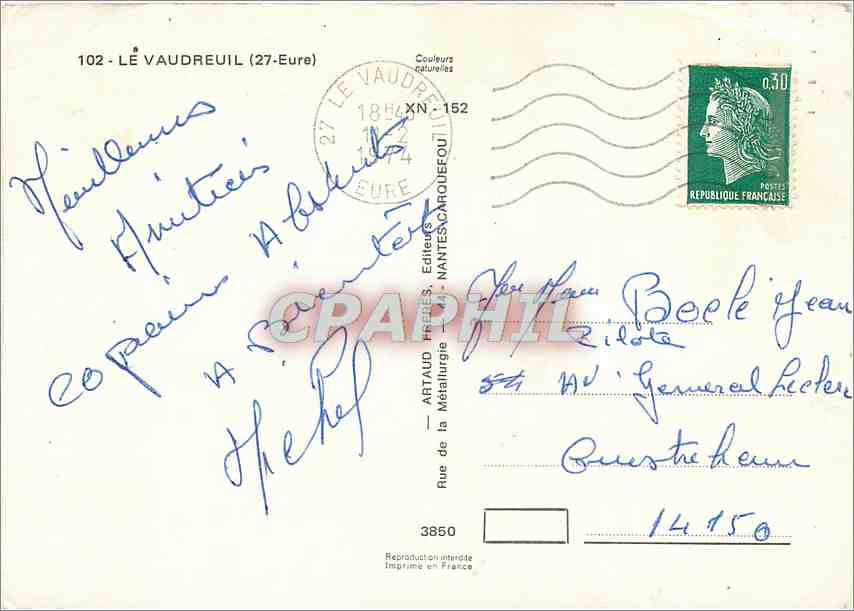 102 - LE VAUDREUIL (27-Eure)
Couleurs
naturelles
XN - 152
27 LE VAUDREUIL
18H45
1974
EURE
0,30
POSTES
REPUBLIQUE FRANÇAISE
Meilleures
Amitiés
copains Absents
A Bientôt
Michel
CPAPHIL
— ARTAUD FRERES, Editeurs
Rue de la Métallurgie — 44 - NANTES-CARQUEFOU
Jean
Pilote
Av General Leclerc
Ouistreham
14150
3850
Reproduction interdite
Imprimé en France